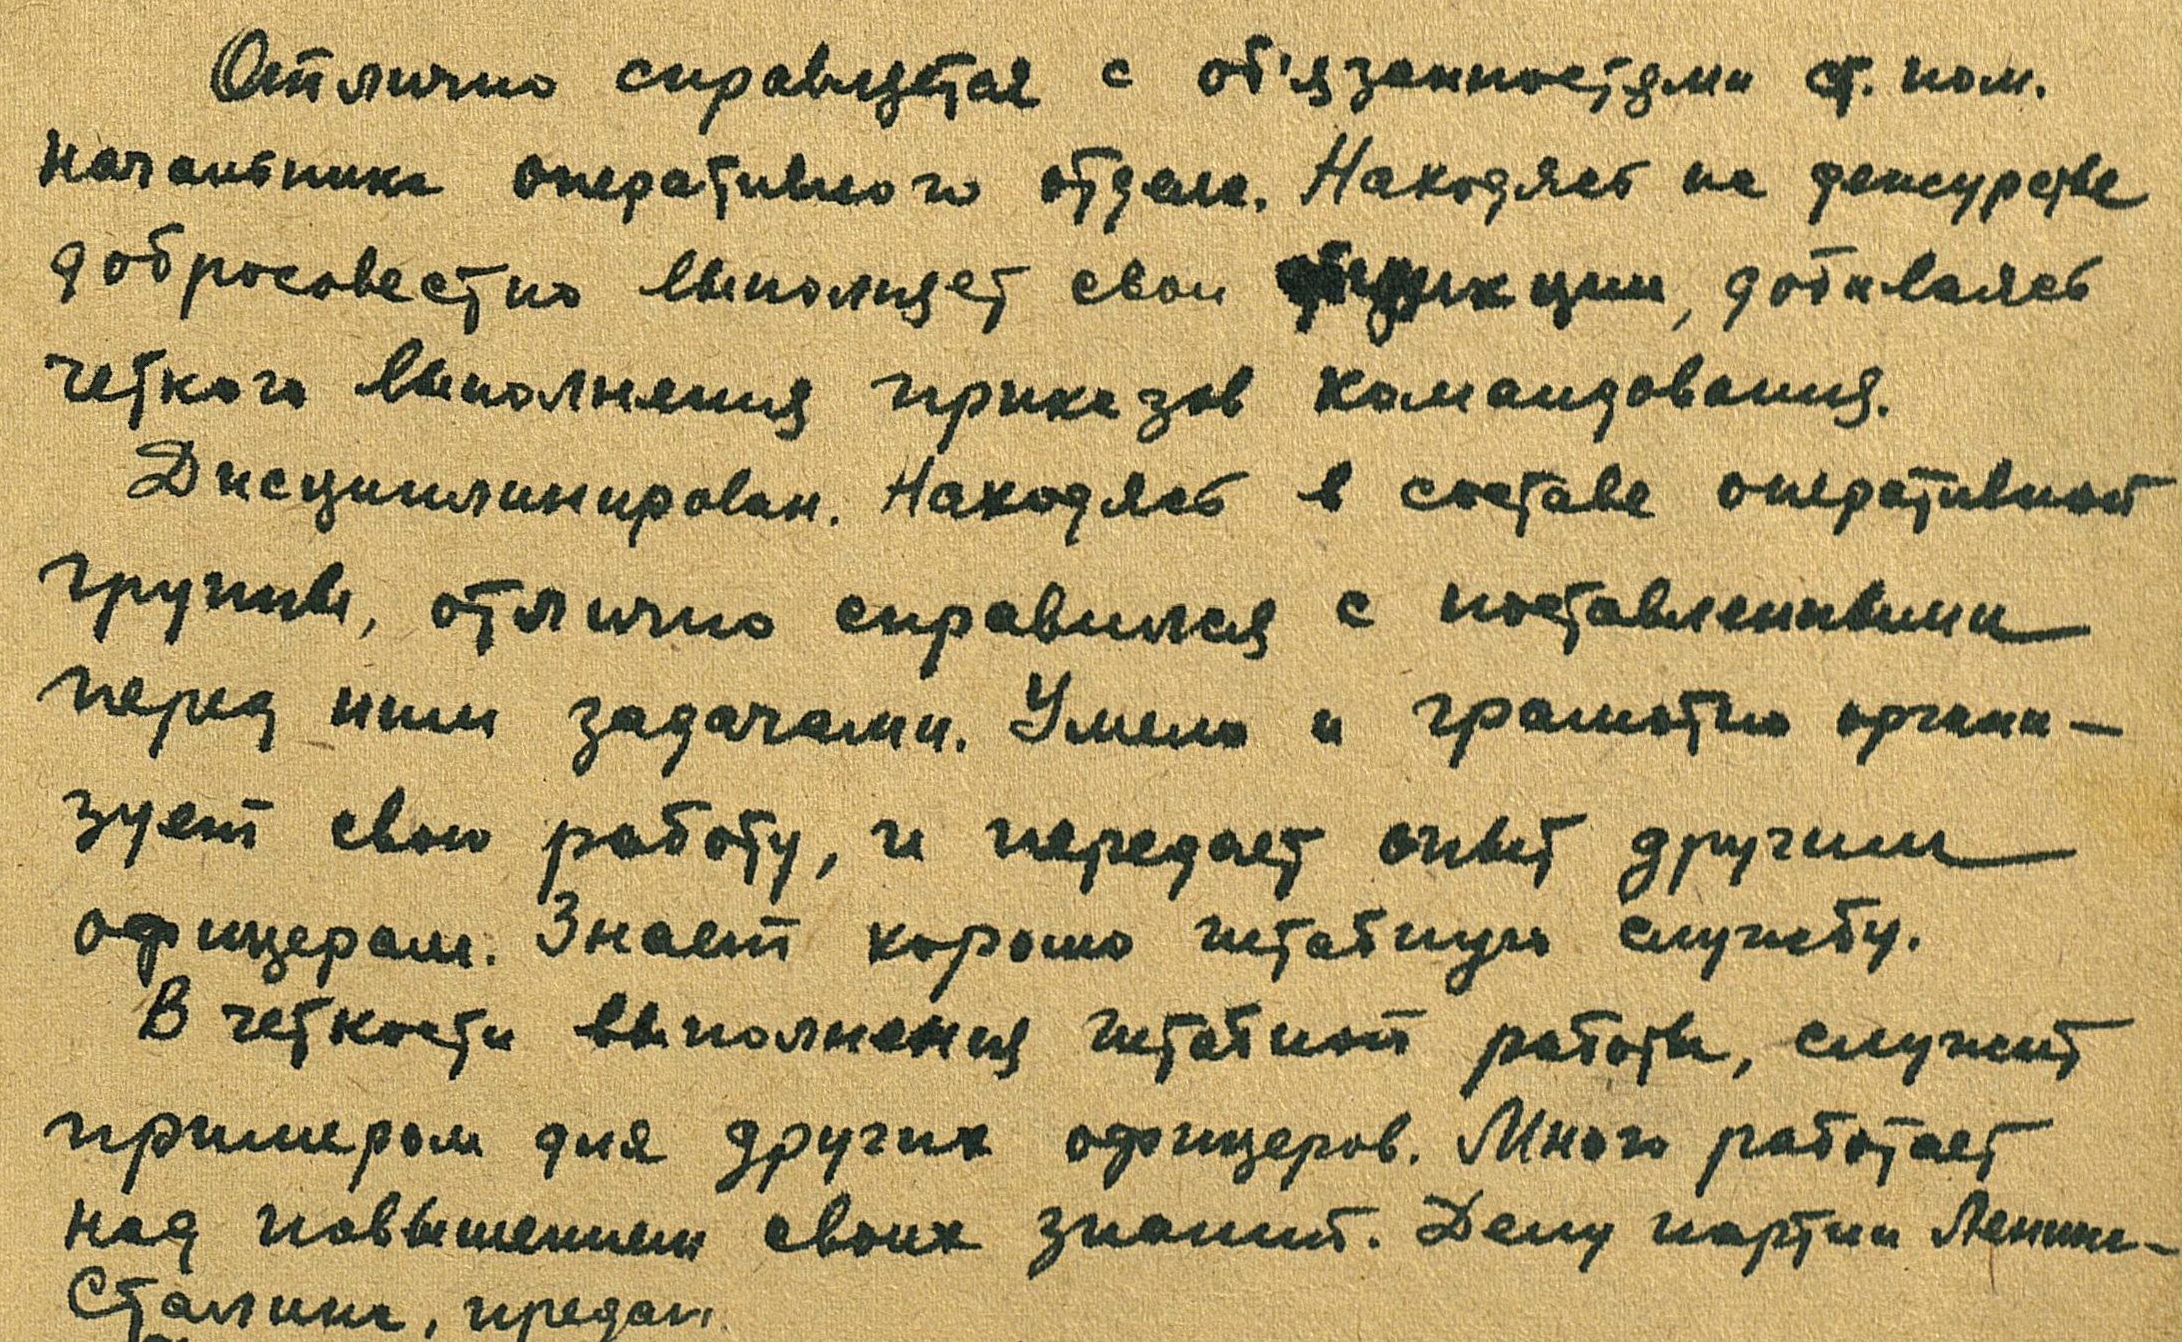 Отлично справляется с об'язанностями ст. пом.
начальника оперативного отдела. Находясь на дежурстве
добросовестно выполняет свои функции, добиваясь
четкого выполнения приказов командования.
Дисциплинирован. Находясь в составе оперативной
группы, отлично справился с поставленными
перед ним задачами. Умело и грамотно органи-
зует свою работу, и передает опыт другим
офицерам. Знает хорошо штабную службу.
В четкости выполнения штабной работы, служит
примером для других офицеров. Много работает
над повышением своих знаний. Делу партии Ленина-
Сталина, предан.